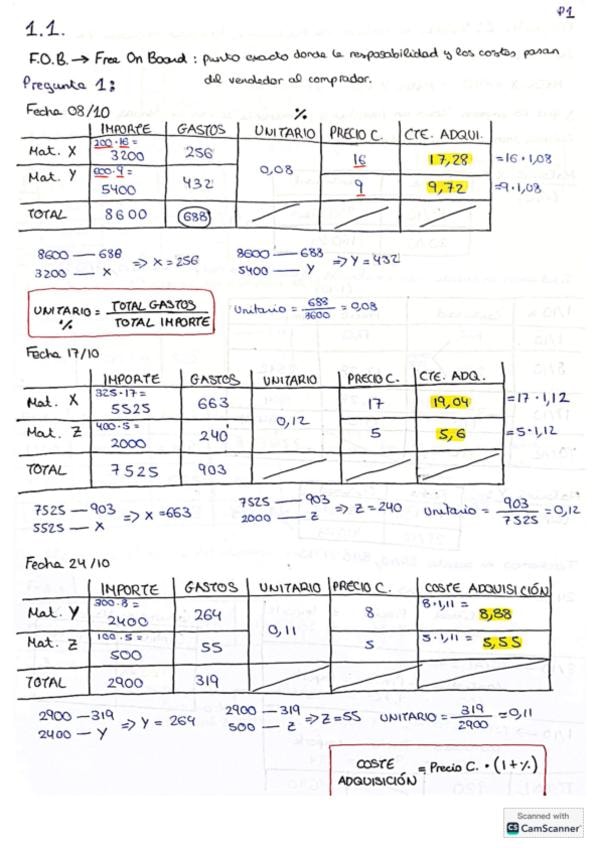 P1
1.1.
F.O.B. → Free On Board : punto exacto donde la resposabilidad y los costes pasan
del vendedor al comprador.
Pregunta 1:
Fecha 08/10
%
IMPORTE GASTOS UNITARIO PRECIO C. CTE. ADQUI.
200·16 =
Mat. X 3200 256 0,08 16 17,28 =16·1,08
600·9 =
Mat. Y 5400 432 9 9,72 =9·1,08
TOTAL 8600 688
8600 — 688 ⇒ X = 256 8600 — 688 ⇒ Y = 432
3200 — X 5400 — Y
UNITARIO % = TOTAL GASTOS / TOTAL IMPORTE Unitario = 688 / 8600 = 0,08
Fecha 17/10
IMPORTE GASTOS UNITARIO PRECIO C. CTE. ADQ.
325·17 =
Mat. X 5525 663 0,12 17 19,04 =17·1,12
400·5 =
Mat. Z 2000 240 5 5,6 =5·1,12
TOTAL 7525 903
7525 — 903 ⇒ X = 663 7525 — 903 ⇒ Z = 240 Unitario = 903 / 7525 = 0,12
5525 — X 2000 — Z
Fecha 24/10
IMPORTE GASTOS UNITARIO PRECIO C. COSTE ADQUISICIÓN
300·8 = 8·1,11 =
Mat. Y 2400 264 0,11 8 8,88
100·5 = 5·1,11 =
Mat. Z 500 55 5 5,55
TOTAL 2900 319
2900 — 319 ⇒ Y = 264 2900 — 319 ⇒ Z = 55 UNITARIO = 319 / 2900 = 0,11
2400 — Y 500 — Z
COSTE ADQUISICIÓN = Precio C. · (1+%)
Scanned with
CS CamScanner